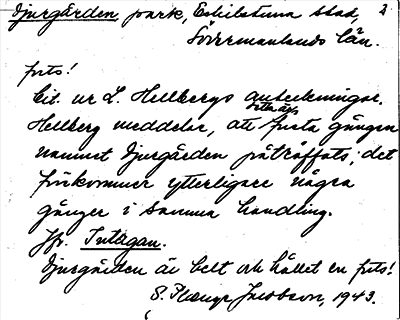 Djurgården park, Eskilstuna stad, 2
Södermanlands län.
forts!
Cit. ur L. Hellbergs anteckningar.
Hellberg meddelar, att detta är första gången
namnet Djurgården påträffats; det
förekommer ytterligare några
gånger i samma handling.
Jfr. Intagan.
Djurgården är helt och hållet en forts!
S. Jacobson, 1943.